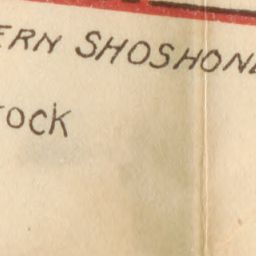 ERN SHOSHONE
OCK